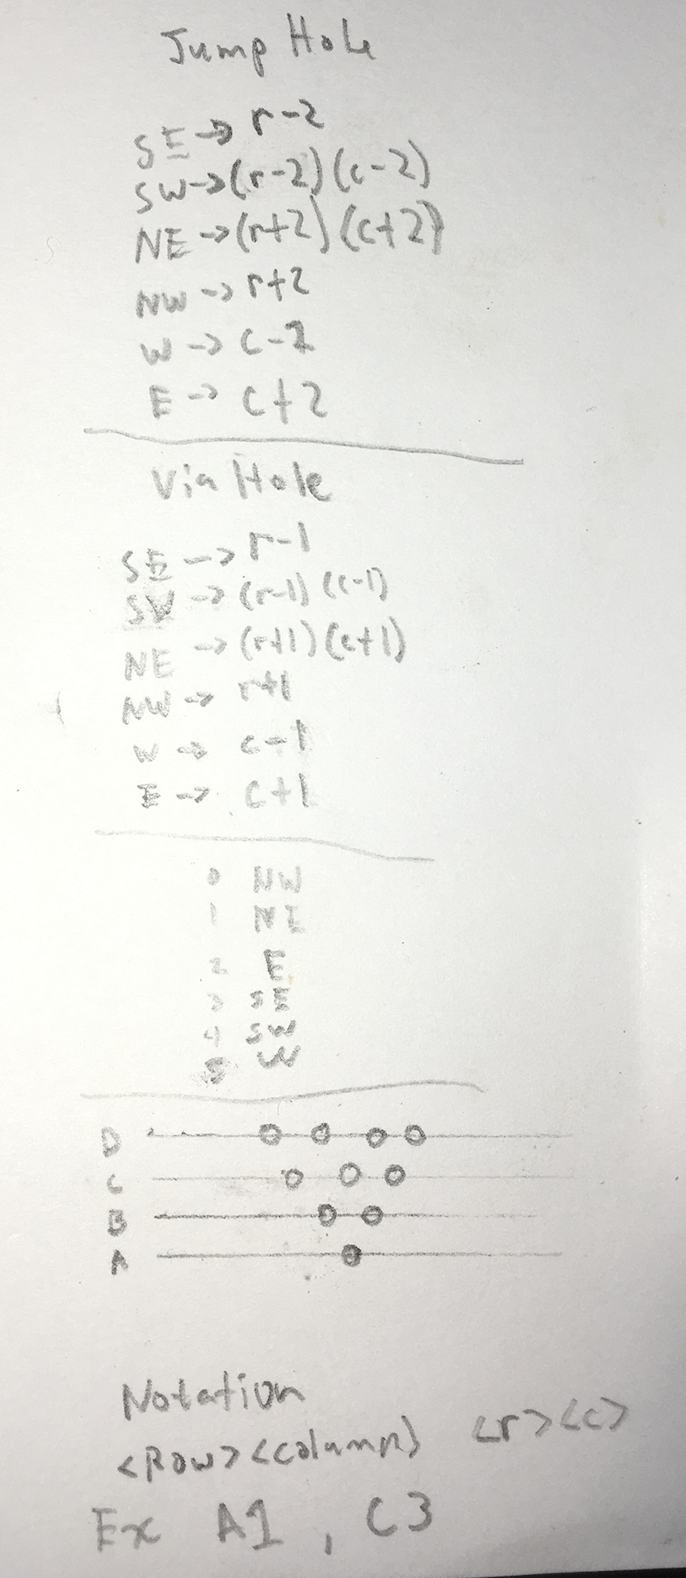 Jump Hole
SE → r-2
SW → (r-2)(c-2)
NE → (r+2)(c+2)
NW → r+2
W → c-2
E → c+2
Via Hole
SE → r-1
SW → (r-1)(c-1)
NE → (r+1)(c+1)
NW → r+1
W → c-1
E → c+1
0 NW
1 NE
2 E
3 SE
4 SW
5 W
D
C
B
A
Notation
<Row><column> <r><c>
Ex A1, C3